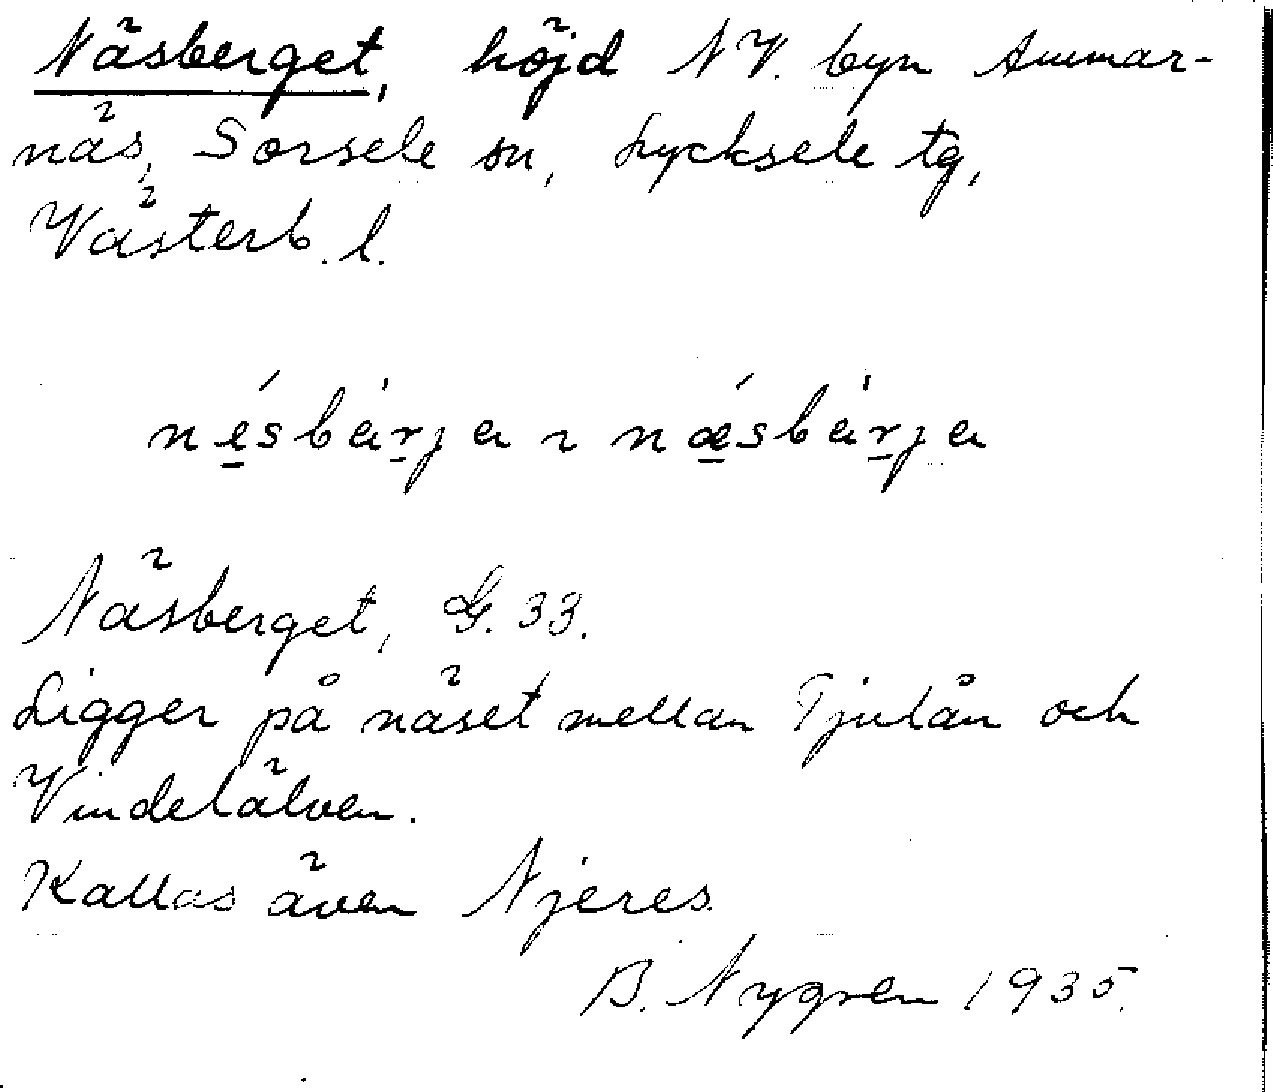 Näsberget, höjd NV. byn Ammar-
näs, Sorsele sn, Lycksele tg,
Västerb. l.
nésbárja ~ næ´sbárja
Näsberget, G. 33.
Ligger på näset mellan Tjulån och
Vindelälven.
Kallas även Njeres.
B. Nygren 1935.